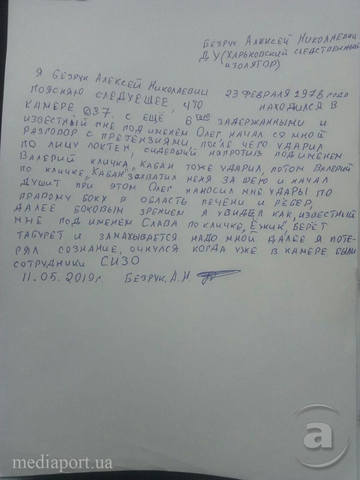 Безрук Алексей Николаевич
ДУ (Харьковский следственный
изолятор)
Я Безрук Алексей Николаевич 23 февраля 1978 года
поясняю следующее, что находился в
камере 037 с ещё 8 задержанными и
известный мне под именем Олег начал со мной
разговор с претензиями, после чего ударил
по лицу локтем, сидевший напротив под именем
Валерий кличка "Кабан" тоже ударил, потом Валерий
по кличке "Кабан" захватил меня за шею и начал
душит при этом Олег наносил мне удары по
правому боку в область печени и рёбер,
далее боковым зрением я увидел как, известный
мне под именем Слава по кличке "Ёжик", берёт
табурет и замахывается надо мной далее я поте-
рял сознание, очнулся когда уже в камере были
сотрудники СИЗО
11.05.2019г. Безрук А.Н
mediaport.ua
a